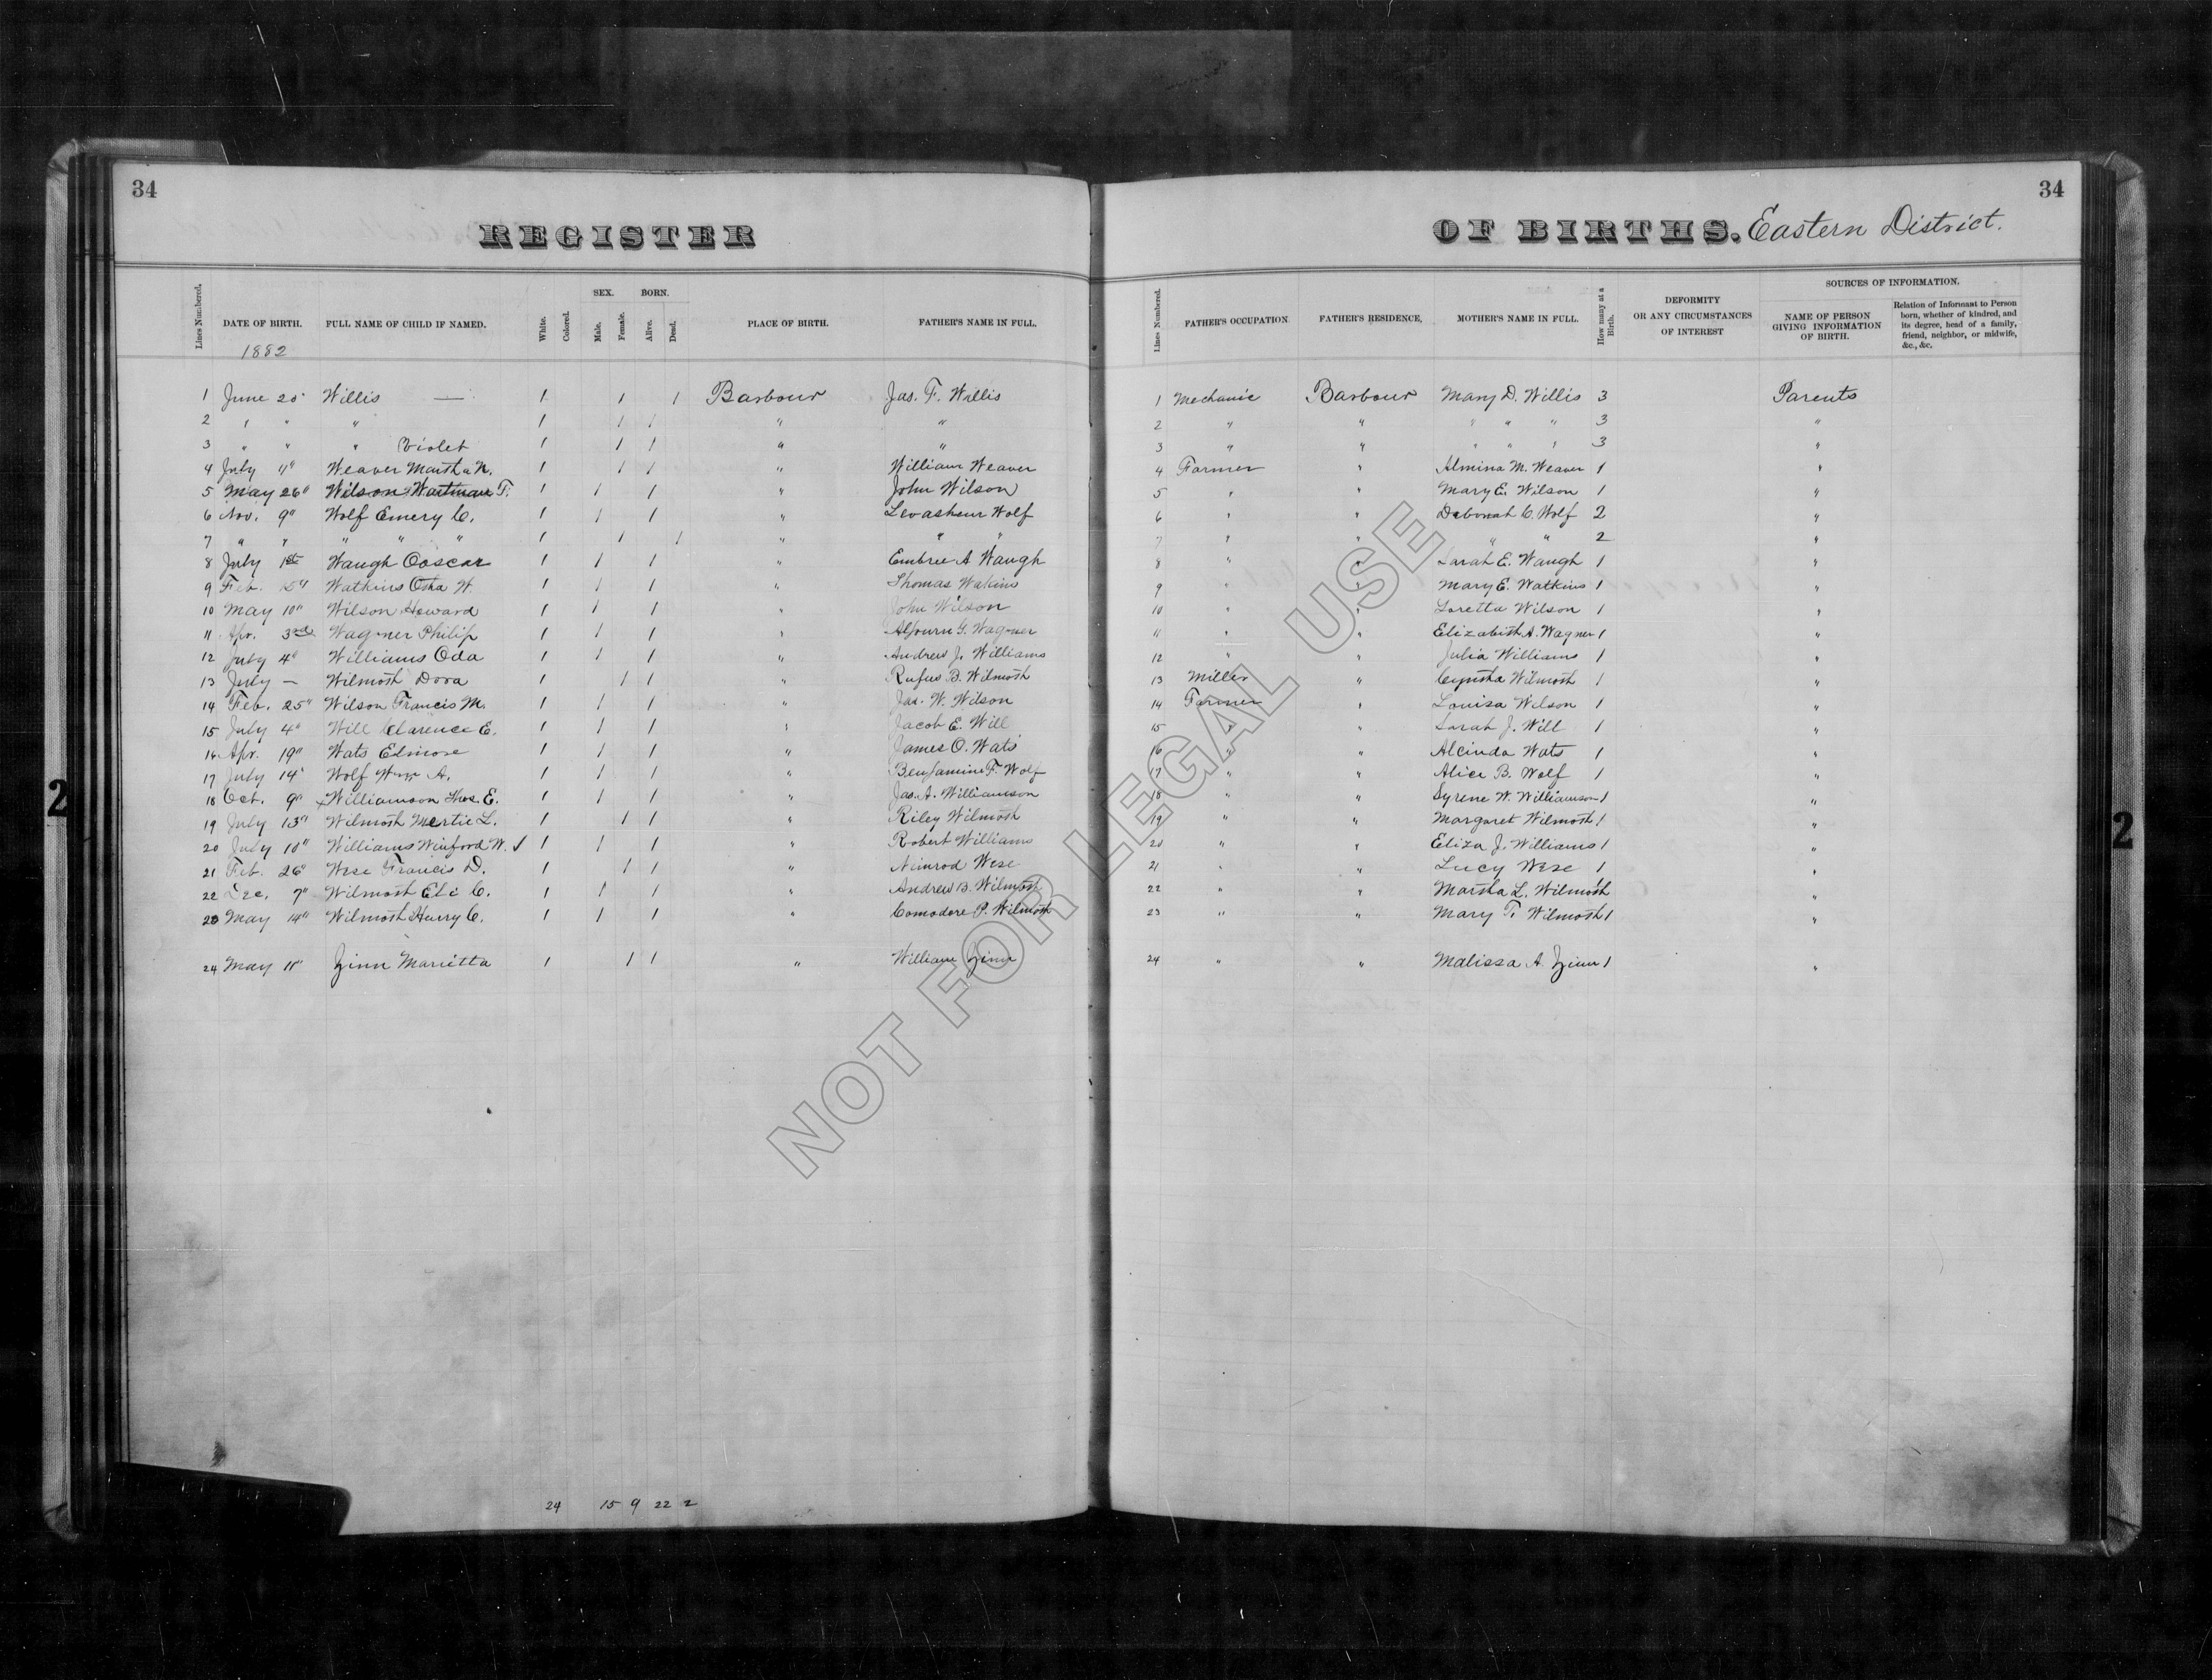 34
34
REGISTER
OF BIRTHS. Eastern District.
Lines Numbered. DATE OF BIRTH. FULL NAME OF CHILD IF NAMED. White. Colored. SEX. Male. Female. BORN. Alive. Dead. PLACE OF BIRTH. FATHER'S NAME IN FULL. Lines Numbered. FATHER'S OCCUPATION FATHER'S RESIDENCE, MOTHER'S NAME IN FULL. How many at a Birth. DEFORMITY OR ANY CIRCUMSTANCES OF INTEREST SOURCES OF INFORMATION. NAME OF PERSON GIVING INFORMATION OF BIRTH. Relation of Informant to Person born, whether of kindred, and its degree, head of a family, friend, neighbor, or midwife, &c., &c.
1882
1 June 20" Willis — 1 1 1 Barbour Jas. F. Willis 1 Mechanic Barbour Mary D. Willis 3 Parents
2 " " " 1 1 1 " " 2 " " " " " 3 "
3 " " " Violet 1 1 1 " " 3 " " " " " 3 "
4 July 11" Weaver Martha N. 1 1 1 " William Weaver 4 Farmer " Almina M. Weaver 1 "
5 May 26" Wilson Wartman T. 1 1 1 " John Wilson 5 " " Mary E. Wilson 1 "
6 Nov. 9" Wolf Emery C. 1 1 1 " Levasheur Wolf 6 " " Deborah C. Wolf 2 "
7 " " " " " 1 1 1 " " " 7 " " " " 2 "
8 July 1st Waugh Ooscar 1 1 1 " Embree A Waugh 8 " " Sarah E. Waugh 1 "
9 Feb. 15" Watkins Otha W. 1 1 1 " Thomas Wakins 9 " " Mary E. Watkins 1 "
10 May 10" Wilson Howard 1 1 1 " John Wilson 10 " " Loretta Wilson 1 "
11 Apr. 3rd Wagner Philip 1 1 1 " Alpourn G. Wagner 11 " " Elizabeth A. Wagner 1 "
12 July 4" Williams Oda 1 1 1 " Andrew J. Williams 12 " " Julia Williams 1 "
13 July — Wilmoth Dora 1 1 1 " Rufus B. Wilmoth 13 Miller " Cyntha Wilmoth 1 "
14 Feb. 25" Wilson Francis M. 1 1 1 " Jas. W. Wilson 14 Farmer " Louisa Wilson 1 "
15 July 4" Will Clarence E. 1 1 1 " Jacob E. Will 15 " " Sarah J. Will 1 "
16 Apr. 19" Wats Elmore 1 1 1 " James O. Wats 16 " " Alcinda Wats 1 "
17 July 14" Wolf Wm A. 1 1 1 " Benjamine F. Wolf 17 " " Alice B. Wolf 1 "
18 Oct. 9" Williamson Thos. E. 1 1 1 " Jas. A. Williamson 18 " " Syrene W. Williamson 1 "
19 July 13" Wilmoth Mertie L. 1 1 1 " Riley Wilmoth 19 " " Margaret Wilmoth 1 "
20 July 10" Williams Winford W. 1 1 1 " Robert Williams 20 " " Eliza J. Williams 1 "
21 Feb. 26" Wese Francis D. 1 1 1 " Nimrod Wese 21 " " Lucy Wese 1 "
22 Dec. 7" Wilmoth Eli C. 1 1 1 " Andrew B. Wilmoth 22 " " Martha L. Wilmoth 1 "
23 May 14" Wilmoth Hurry C. 1 1 1 " Comodore P. Wilmoth 23 " " Mary T. Wilmoth 1 "
24 May 11" Zinn Marietta 1 1 1 " William Zinn 24 " " Malissa A. Zinn 1 "
24 15 9 22 2
2
2
NOT FOR LEGAL USE